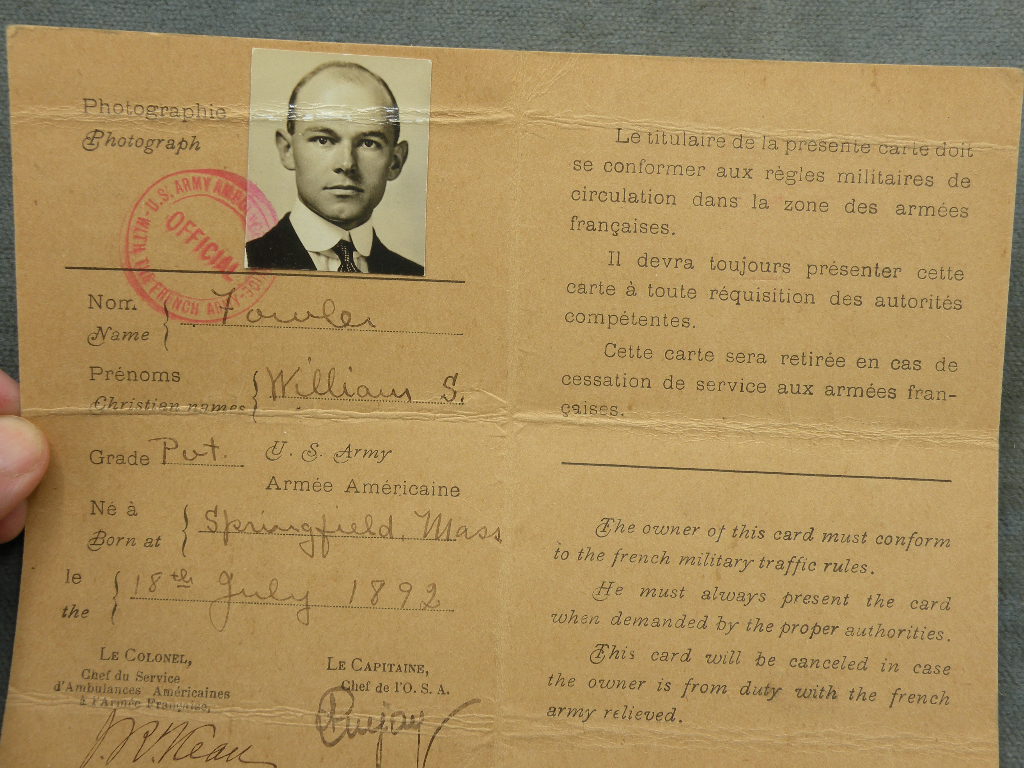 Photographie
Photograph
WITH U.S. ARMY AMBU
OFFICIAL
FRENCH ARMY
Nom
Name
Fowler
Prénoms
Christian names
William S.
Grade Pvt. U. S. Army
Armée Américaine
Né à
Born at
Springfield, Mass
le
the
18th July 1892
LE COLONEL,
Chef du Service
d'Ambulances Américaines
à l'Armée Française,
LE CAPITAINE,
Chef de l'O. S. A.
Le titulaire de la présente carte doit
se conformer aux règles militaires de
circulation dans la zone des armées
françaises.
Il devra toujours présenter cette
carte à toute réquisition des autorités
compétentes.
Cette carte sera retirée en cas de
cessation de service aux armées fran-
çaises.
The owner of this card must conform
to the french military traffic rules.
He must always present the card
when demanded by the proper authorities.
This card will be canceled in case
the owner is from duty with the french
army relieved.